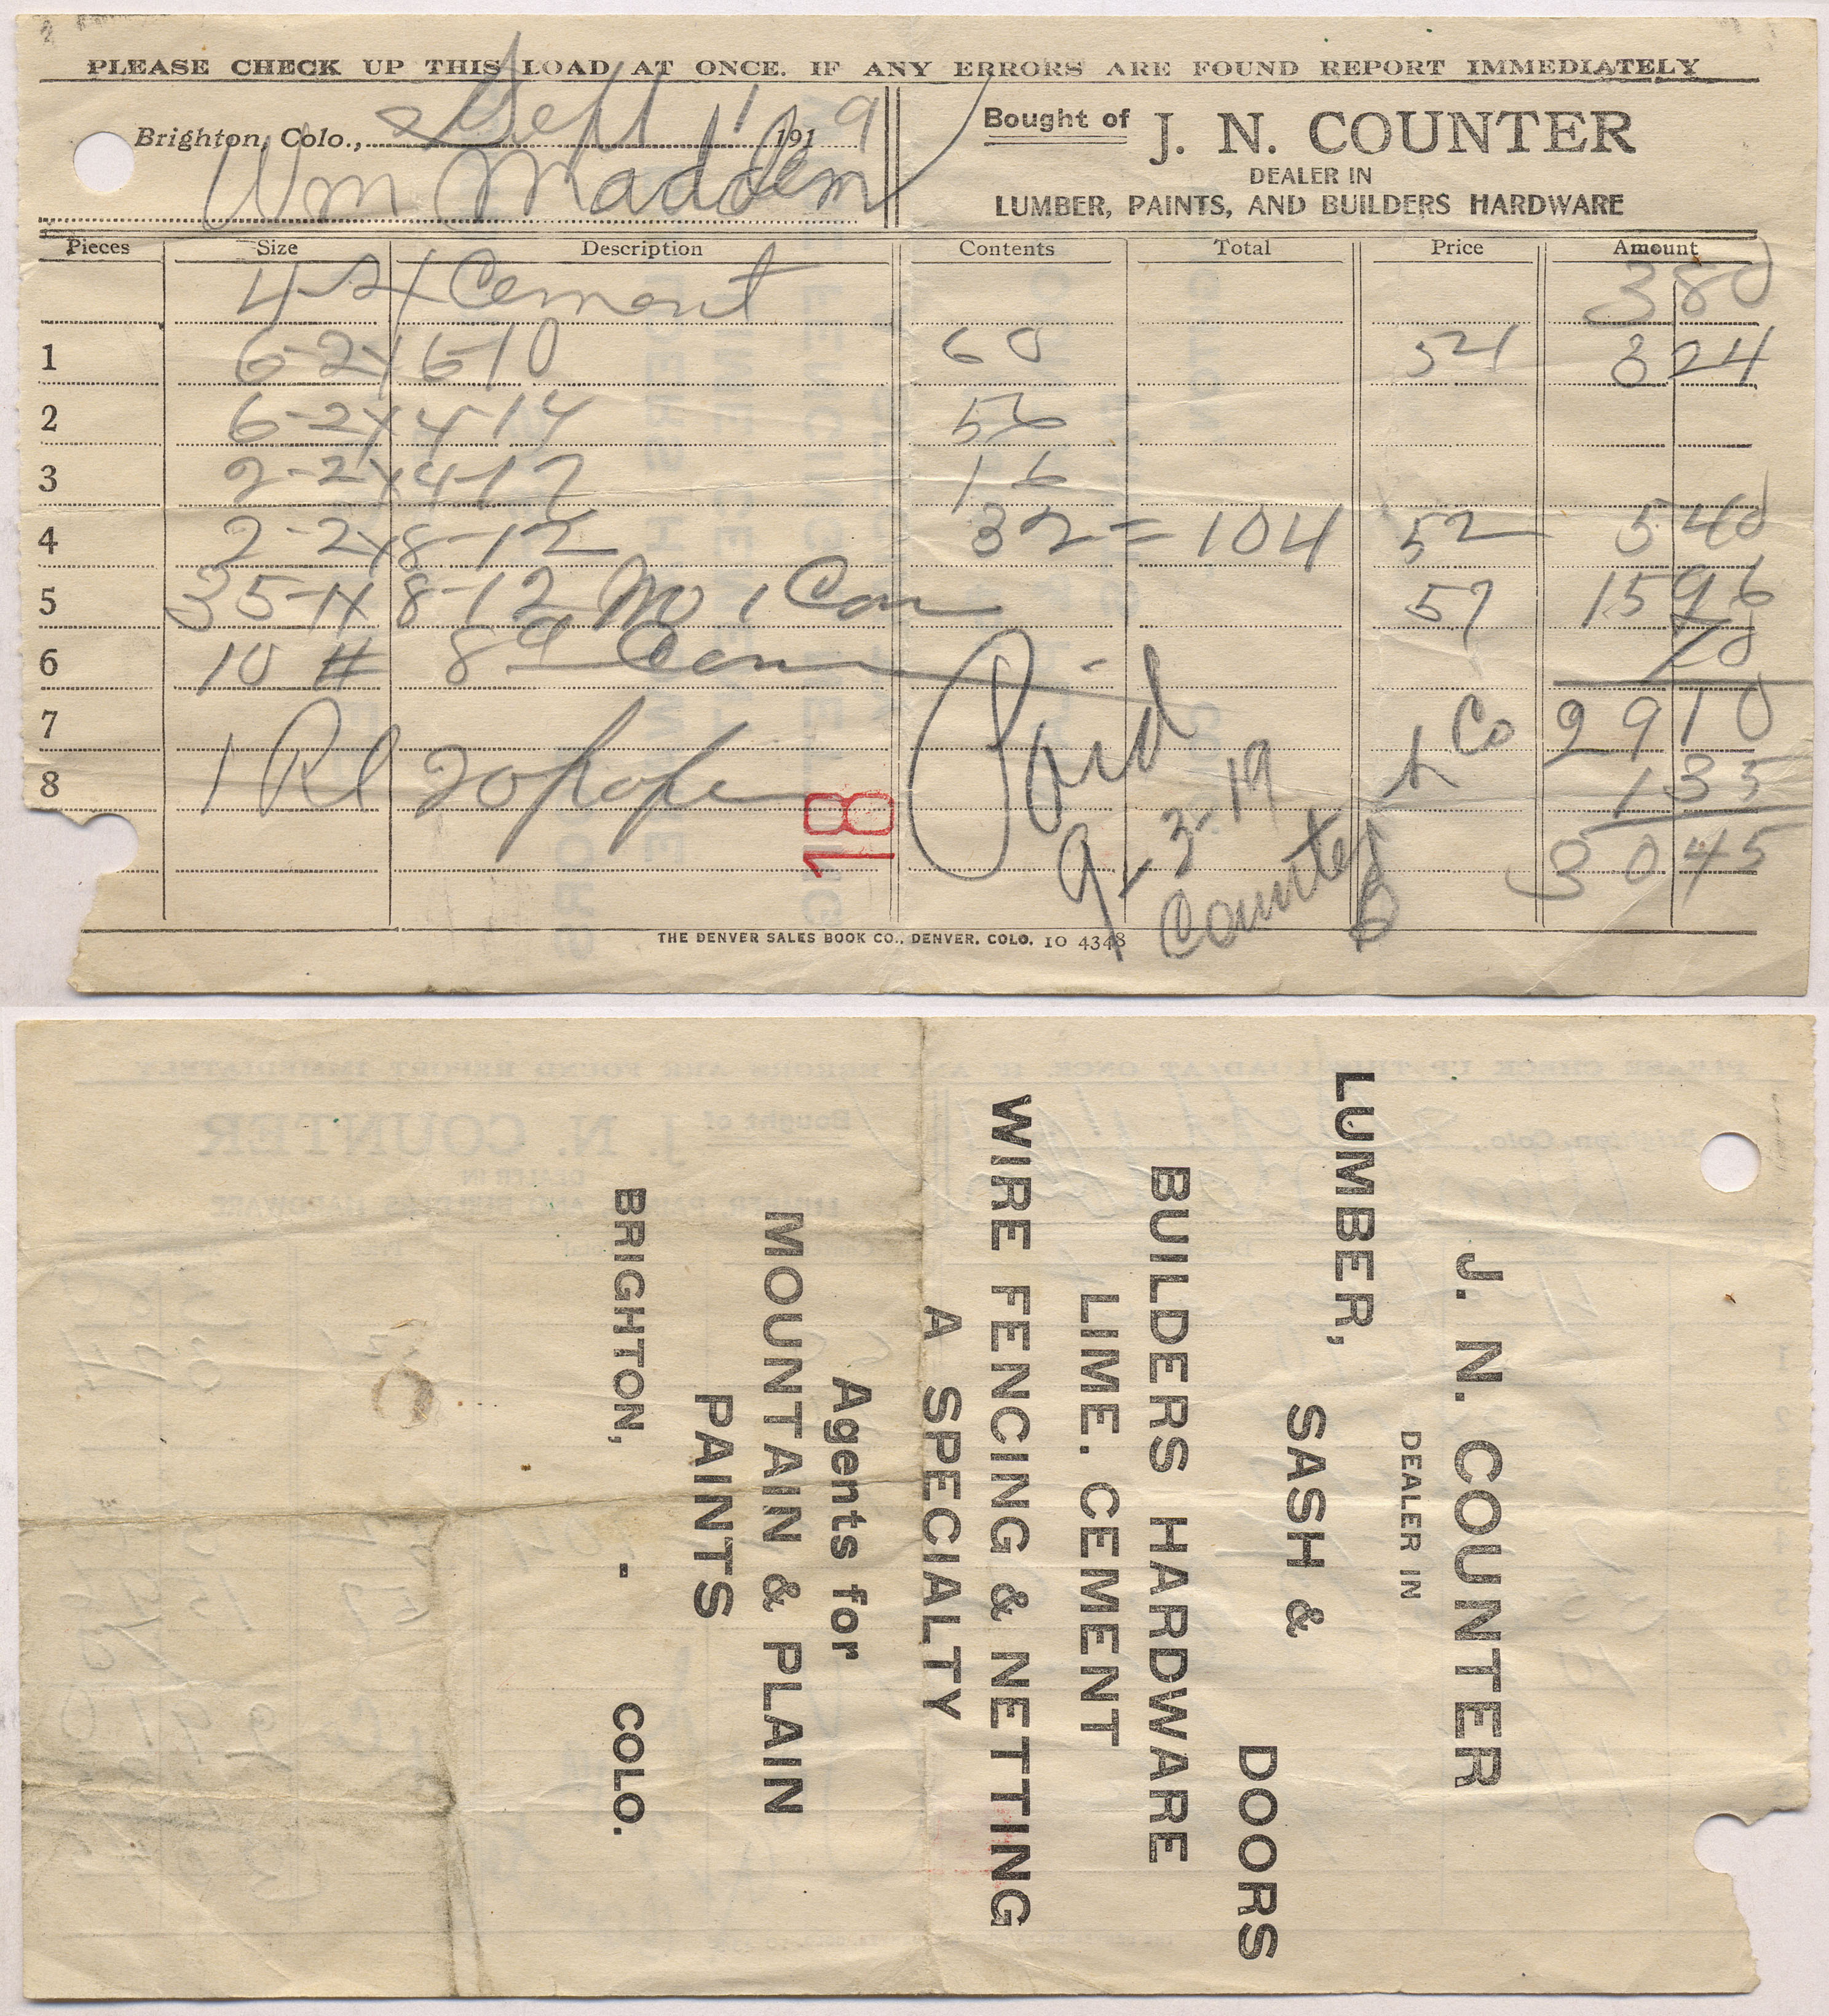 PLEASE CHECK UP THIS LOAD AT ONCE. IF ANY ERRORS ARE FOUND REPORT IMMEDIATELY
Brighton, Colo., Sept 1 1919
Wm Madden
Bought of J. N. COUNTER
DEALER IN
LUMBER, PAINTS, AND BUILDERS HARDWARE
Pieces Size Description Contents Total Price Amount
Cement 3 80
1 6-2x6-10 60 54 3 24
2 6-2x4-14 56
3 2-2x4-12 16
4 2-2x8-12 32 = 104 52 5 40
5 35-1x8-12 No 1 Com 57 15 96
6 10 # 8d Com 70
7 29 10
8 1 Rl 1 35
30 45
Paid
9-3-19
Counter L Co
18
THE DENVER SALES BOOK CO., DENVER, COLO. 10 4348
J. N. COUNTER
DEALER IN
LUMBER, SASH & DOORS
BUILDERS HARDWARE
LIME. CEMENT
WIRE FENCING & NETTING
A SPECIALTY
Agents for
MOUNTAIN & PLAIN
PAINTS
BRIGHTON, - COLO.